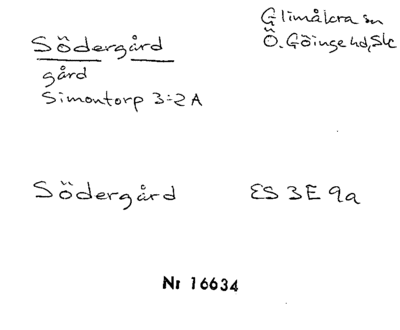 Södergård
Glimåkra sn
Ö. Göinge hd, Sk
gård
Simontorp 3:2 A
Södergård
ES 3E 9a
Nr 16634